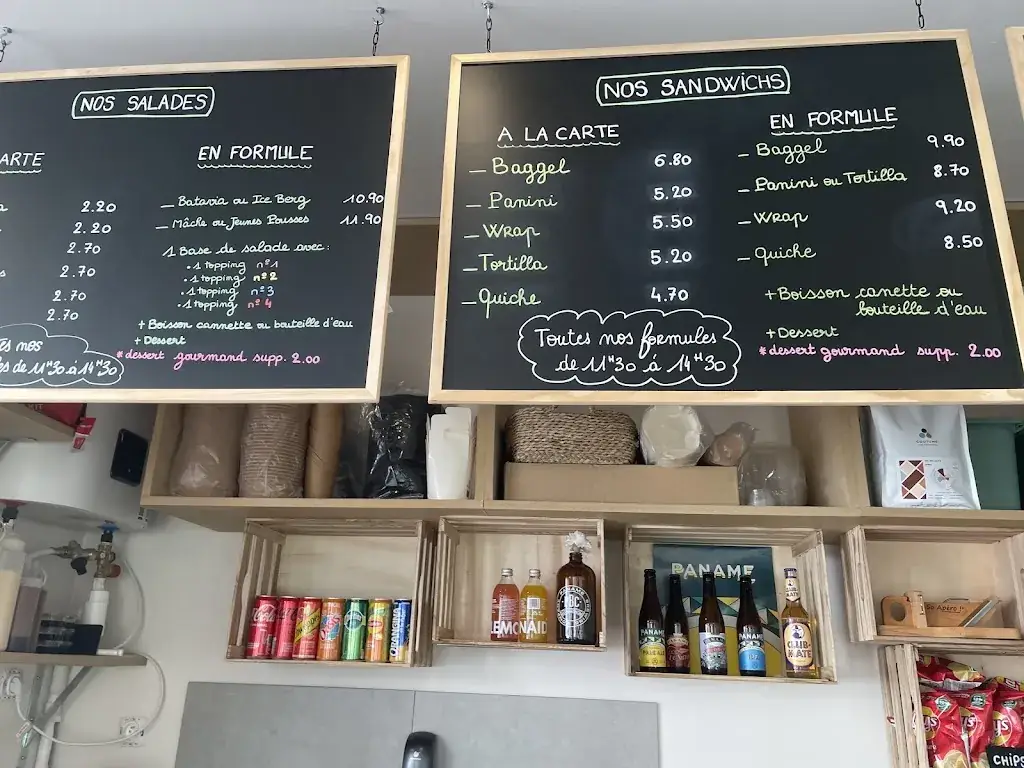 NOS SALADES
ARTE
2.20
2.20
2.70
2.70
2.70
2.70
EN FORMULE
_ Batavia ou Ice Berg 10.90
_ Mâche ou Jeunes Pousses 11.90
1 Base de salade avec:
. 1 topping n°1
. 1 topping n°2
. 1 topping n°3
. 1 topping n°4
+ Boisson cannette ou bouteille d'eau
+ Dessert
* dessert gourmand supp. 2.00
nos
de 11H30 à 14H30
NOS SANDWICHS
A LA CARTE
_ Baggel 6.80
_ Panini 5.20
_ Wrap 5.50
_ Tortilla 5.20
_ Quiche 4.70
Toutes nos formules
de 11H30 à 14H30
EN FORMULE
_ Baggel 9.90
_ Panini ou Tortilla 8.70
_ Wrap 9.20
_ Quiche 8.50
+ Boisson canette ou
bouteille d'eau
+ Dessert
* dessert gourmand supp. 2.00
LEMONAID
PANAME
PANAME
PANAME
CLUB-MATE
So Apéro !!
Lay's
CHIPS